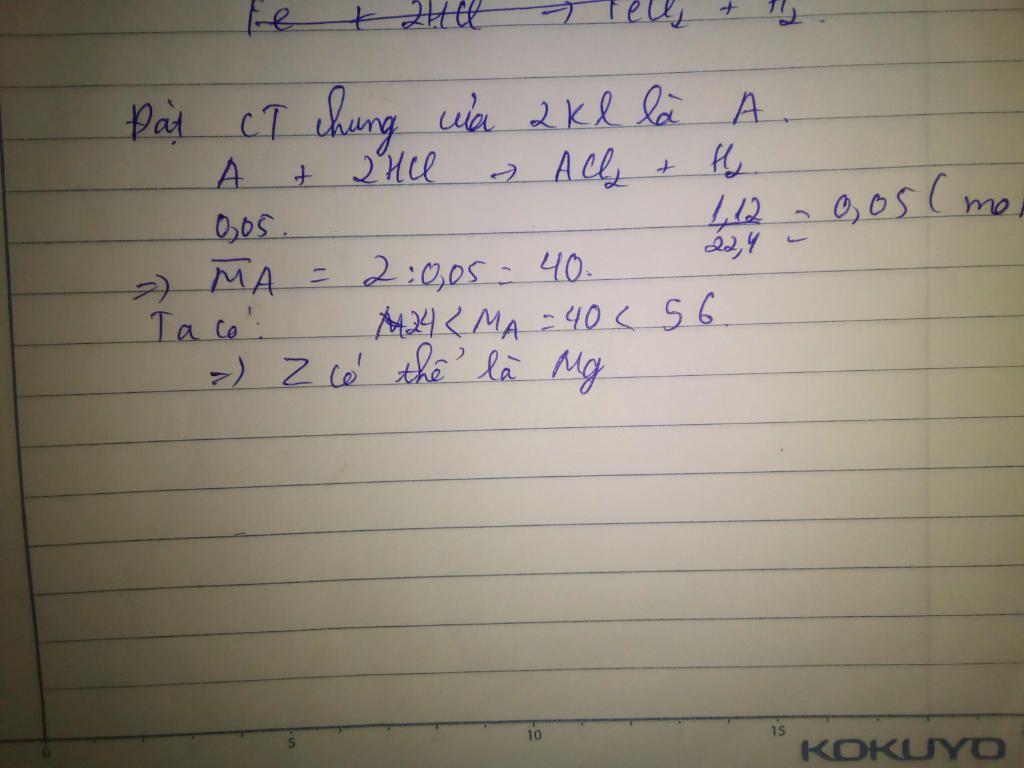 Fe + 2HCl → FeCl₂ + H₂.
Đặt CT chung của 2 Kl là A.
A + 2HCl → ACl₂ + H₂
0,05. 1,12/22,4 = 0,05 (mol
=) M̅A = 2:0,05 = 40.
Ta có: 24 < MA = 40 < 56.
=) Z có thể là Mg
0 5 10 15
KOKUYO